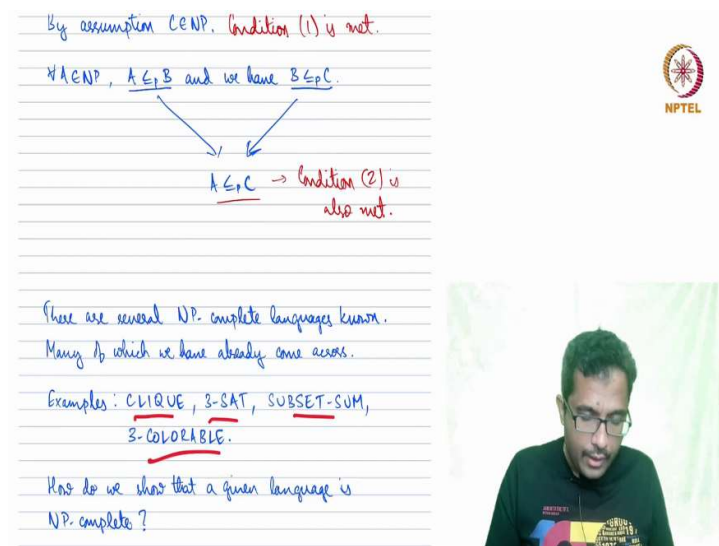 By assumption C∈NP. Condition (1) is met.
∀A∈NP, A ≤ₚ B and we have B ≤ₚ C.
NPTEL
A ≤ₚ C → Condition (2) is
also met.
There are several NP-complete languages known.
Many of which we have already come across.
Examples: CLIQUE, 3-SAT, SUBSET-SUM,
3-COLORABLE.
How do we show that a given language is
NP-complete?